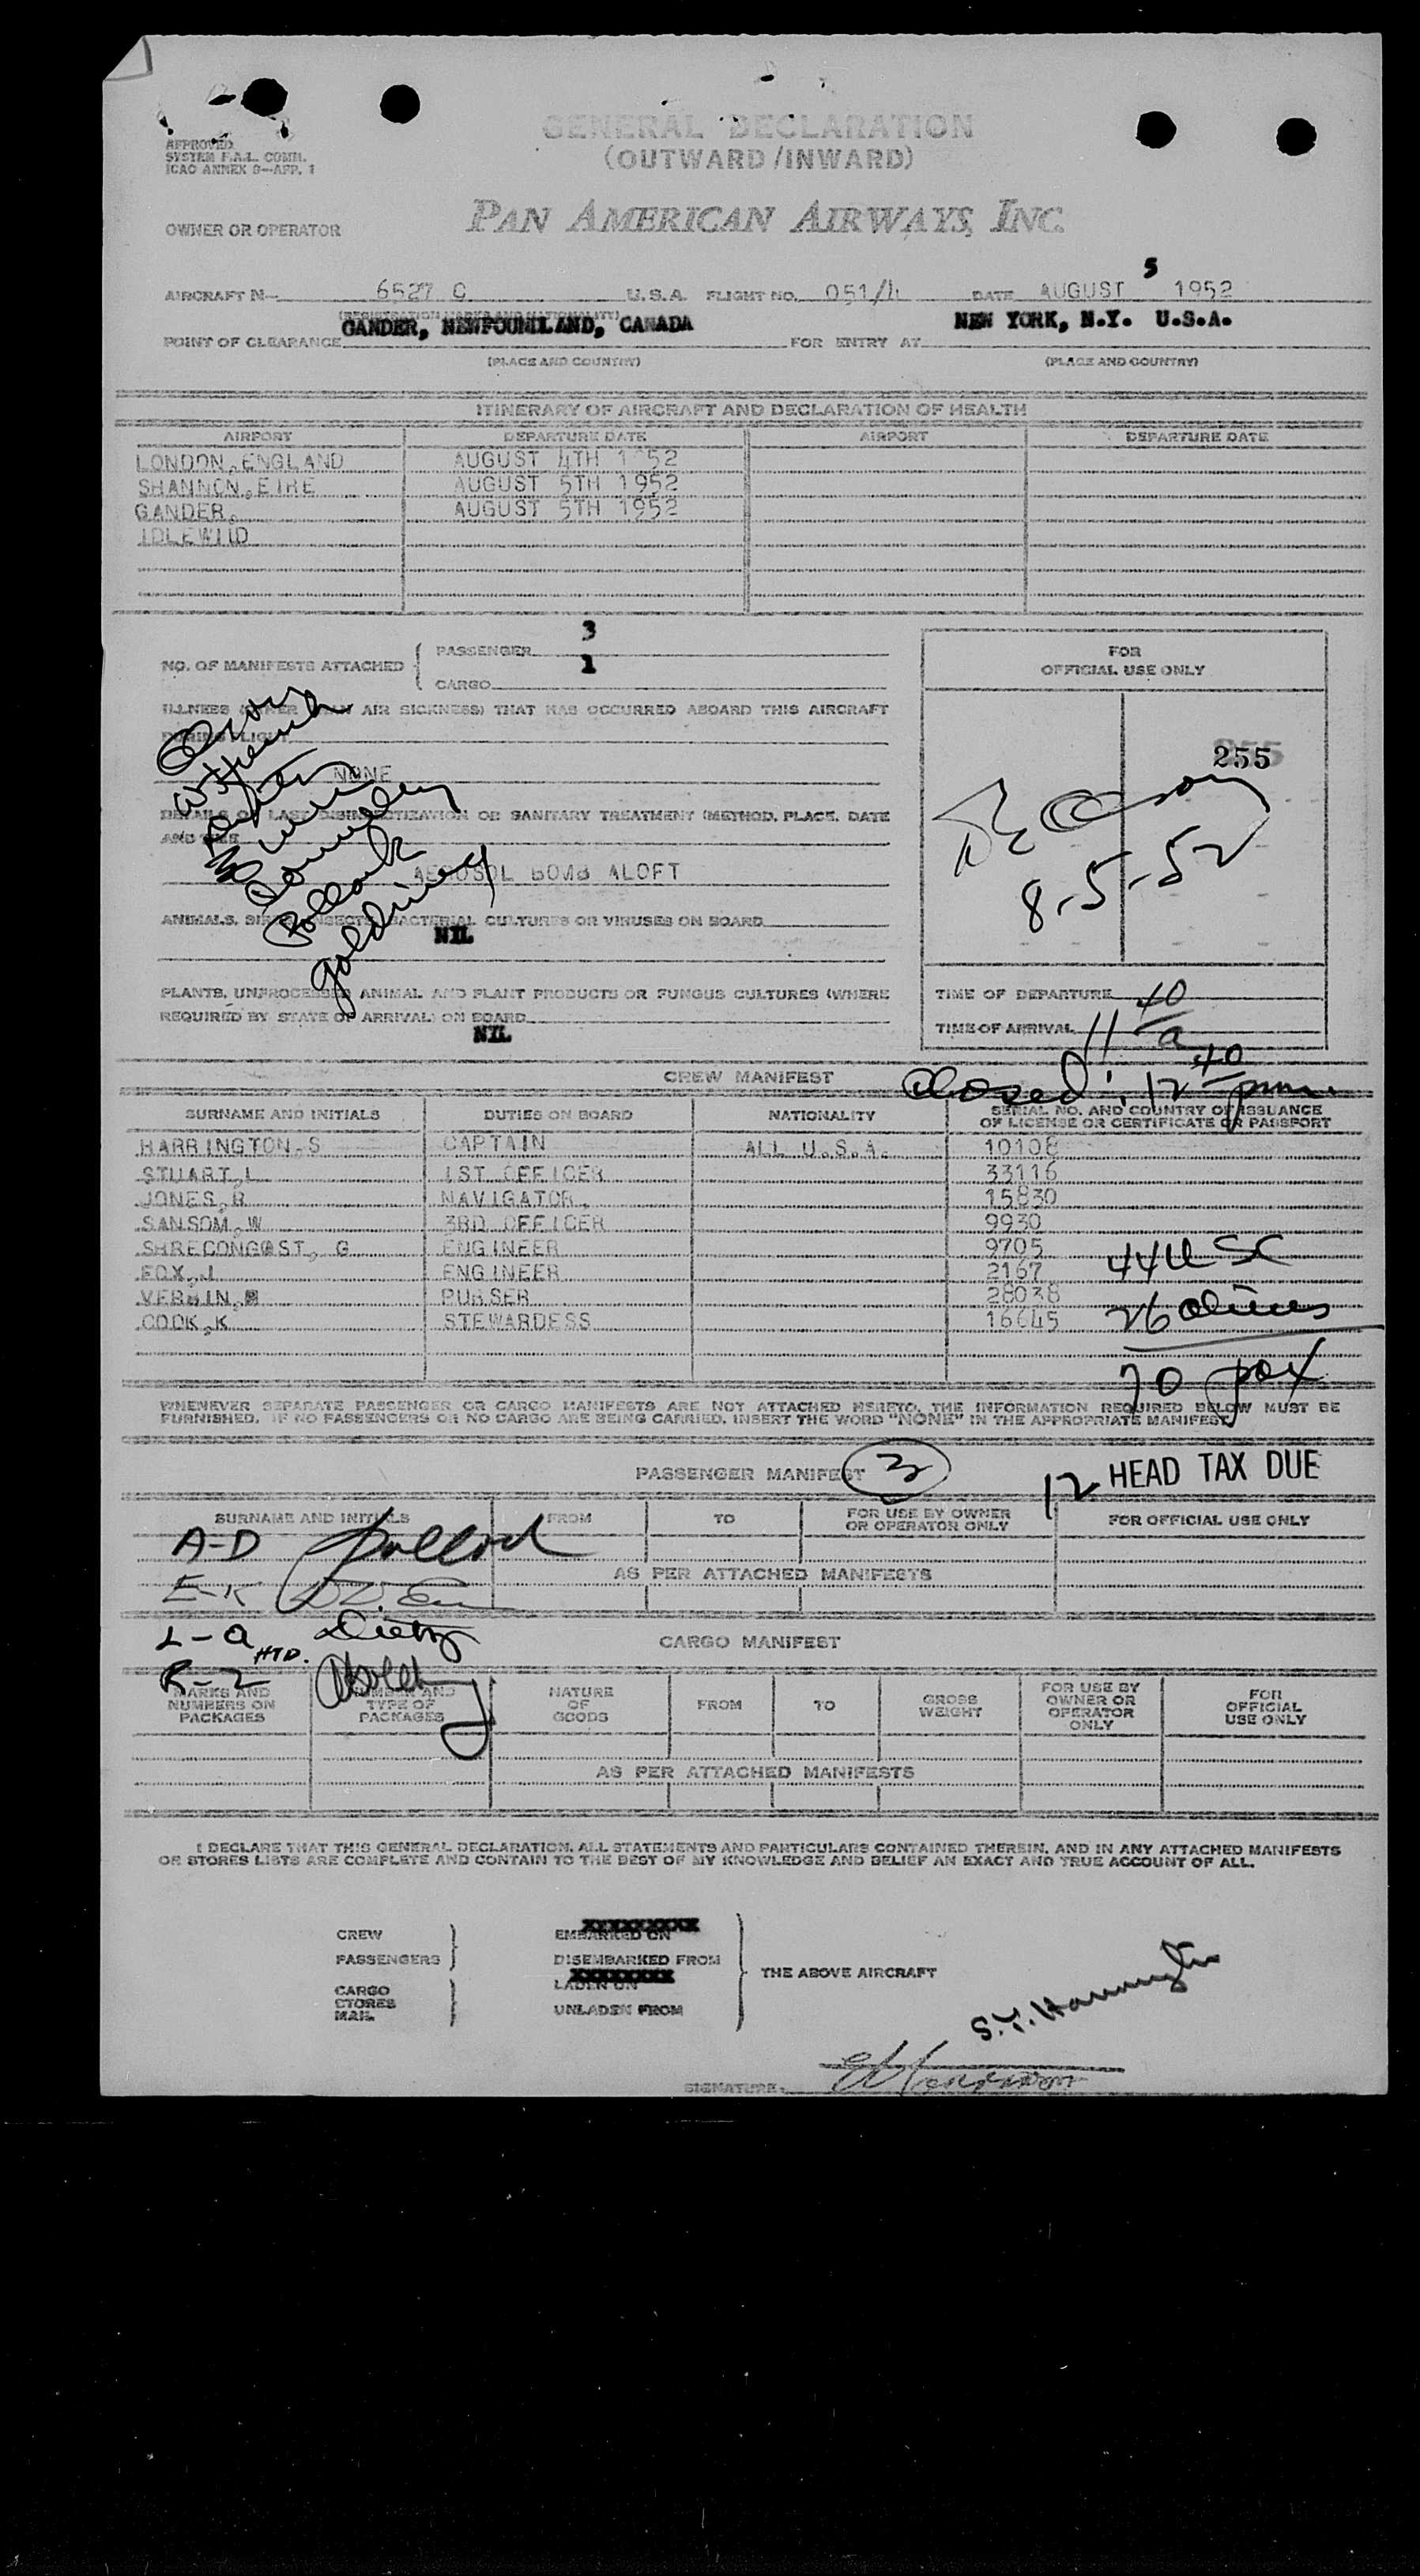 GENERAL DECLARATION
(OUTWARD/INWARD)
APPROVED
SYSTEM F.A.L. COMM.
ICAO ANNEX 9—APP. 1
OWNER OR OPERATOR PAN AMERICAN AIRWAYS, INC.
AIRCRAFT N— 6527 C U.S.A. FLIGHT NO. 051/4 DATE AUGUST 5 1952
(REGISTRATION MARKS AND NATIONALITY)
POINT OF CLEARANCE GANDER, NEWFOUNDLAND, CANADA FOR ENTRY AT NEW YORK, N.Y. U.S.A.
(PLACE AND COUNTRY) (PLACE AND COUNTRY)
ITINERARY OF AIRCRAFT AND DECLARATION OF HEALTH
AIRPORT DEPARTURE DATE AIRPORT DEPARTURE DATE
LONDON, ENGLAND AUGUST 4TH 1952
SHANNON, EIRE AUGUST 5TH 1952
GANDER, AUGUST 5TH 1952
IDLEWILD
NO. OF MANIFESTS ATTACHED { PASSENGER 3
CARGO 1
ILLNESS (OTHER THAN AIR SICKNESS) THAT HAS OCCURRED ABOARD THIS AIRCRAFT
DURING FLIGHT
NONE
DETAILS OF LAST DISINSECTIZATION OR SANITARY TREATMENT (METHOD, PLACE, DATE
AND TIME
AEROSOL BOMB ALOFT
ANIMALS, BIRDS, INSECTS, BACTERIAL CULTURES OR VIRUSES ON BOARD
NIL
PLANTS, UNPROCESSED ANIMAL AND PLANT PRODUCTS OR FUNGUS CULTURES (WHERE
REQUIRED BY STATE OF ARRIVAL) ON BOARD
NIL
Pollack
FOR
OFFICIAL USE ONLY
255
8-5-52
TIME OF DEPARTURE
TIME OF ARRIVAL 11 40/a
Closed: 12 40/pm.
CREW MANIFEST
SURNAME AND INITIALS DUTIES ON BOARD NATIONALITY SERIAL NO. AND COUNTRY OF ISSUANCE
OF LICENSE OR CERTIFICATE OR PASSPORT
HARRINGTON, S CAPTAIN ALL U.S.A. 10108
STUART, L 1ST OFFICER 33116
JONES, R NAVIGATOR, 15830
SANSOM, W 3RD OFFICER 9930
SHRECONGOST, G ENGINEER 9705
FOX, J ENGINEER 2167
PURSER 28038
COOK, K STEWARDESS 16645
44 USC
26 aliens
70 pax
WHENEVER SEPARATE PASSENGER OR CARGO MANIFESTS ARE NOT ATTACHED HERETO, THE INFORMATION REQUIRED BELOW MUST BE
FURNISHED. IF NO PASSENGERS OR NO CARGO ARE BEING CARRIED, INSERT THE WORD "NONE" IN THE APPROPRIATE MANIFEST.
PASSENGER MANIFEST 3
12 HEAD TAX DUE
SURNAME AND INITIALS FROM TO FOR USE BY OWNER
OR OPERATOR ONLY FOR OFFICIAL USE ONLY
A-D
AS PER ATTACHED MANIFESTS
E-K
L-Q
HTD.
R-Z
CARGO MANIFEST
MARKS AND
NUMBERS ON
PACKAGES NUMBER AND
TYPE OF
PACKAGES NATURE
OF
GOODS FROM TO GROSS
WEIGHT FOR USE BY
OWNER OR
OPERATOR
ONLY FOR
OFFICIAL
USE ONLY
AS PER ATTACHED MANIFESTS
I DECLARE THAT THIS GENERAL DECLARATION, ALL STATEMENTS AND PARTICULARS CONTAINED THEREIN, AND IN ANY ATTACHED MANIFESTS
OR STORES LISTS ARE COMPLETE AND CONTAIN TO THE BEST OF MY KNOWLEDGE AND BELIEF AN EXACT AND TRUE ACCOUNT OF ALL.
CREW EMBARKED ON
PASSENGERS DISEMBARKED FROM
THE ABOVE AIRCRAFT
CARGO LADEN ON
STORES
MAIL UNLADEN FROM
S.T. Harrington
SIGNATURE